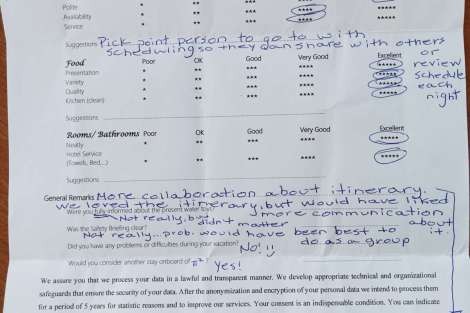 Polite * ** *** ****
Availability * ** *** ****
Service * ** *** ****
Suggestions Pick point person to go to with
scheduling so they can share with others
or review schedule each night
Food Poor OK Good Very Good Excellent
Presentation * ** *** **** *****
Variety * ** *** **** *****
Quality * ** *** **** *****
Kitchen (clean) * ** *** **** *****
Suggestions
Rooms/ Bathrooms Poor OK Good Very Good Excellent
* ** *** **** *****
Hotel Service
(Towels, Bed...) * ** *** **** *****
Suggestions
General Remarks More collaboration about itinerary.
We loved the itinerary, but would have liked
more communication about it
Were you fully informed about the present water toys?
Not really, but didn't matter
Was the Safety Briefing clear?
Not really... prob. would have been best to do as a group
Did you have any problems or difficulties during your vacation? No!!
Would you consider another stay onboard of Yes!
We assure you that we process your data in a lawful and transparent manner. We develop appropriate technical and organizational
safeguards that ensure the security of your data. After the anonymization and encryption of your personal data we intend to process them
for a period of 5 years for statistic reasons and to improve our services. Your consent is an indispensable condition. You can indicate